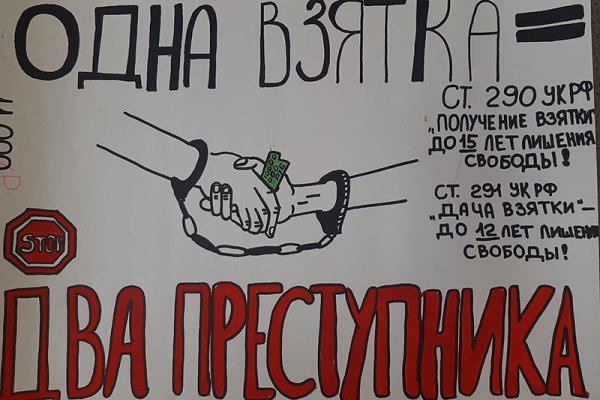 ОДНА ВЗЯТКА =
СТ. 290 УК РФ
„ПОЛУЧЕНИЕ ВЗЯТКИ
ДО 15 ЛЕТ ЛИШЕНИЯ
СВОБОДЫ!
СТ. 291 УК РФ
„ДАЧА ВЗЯТКИ“–
ДО 12 ЛЕТ ЛИШЕНИ
СВОБОДЫ!
STOP
ДВА ПРЕСТУПНИКА